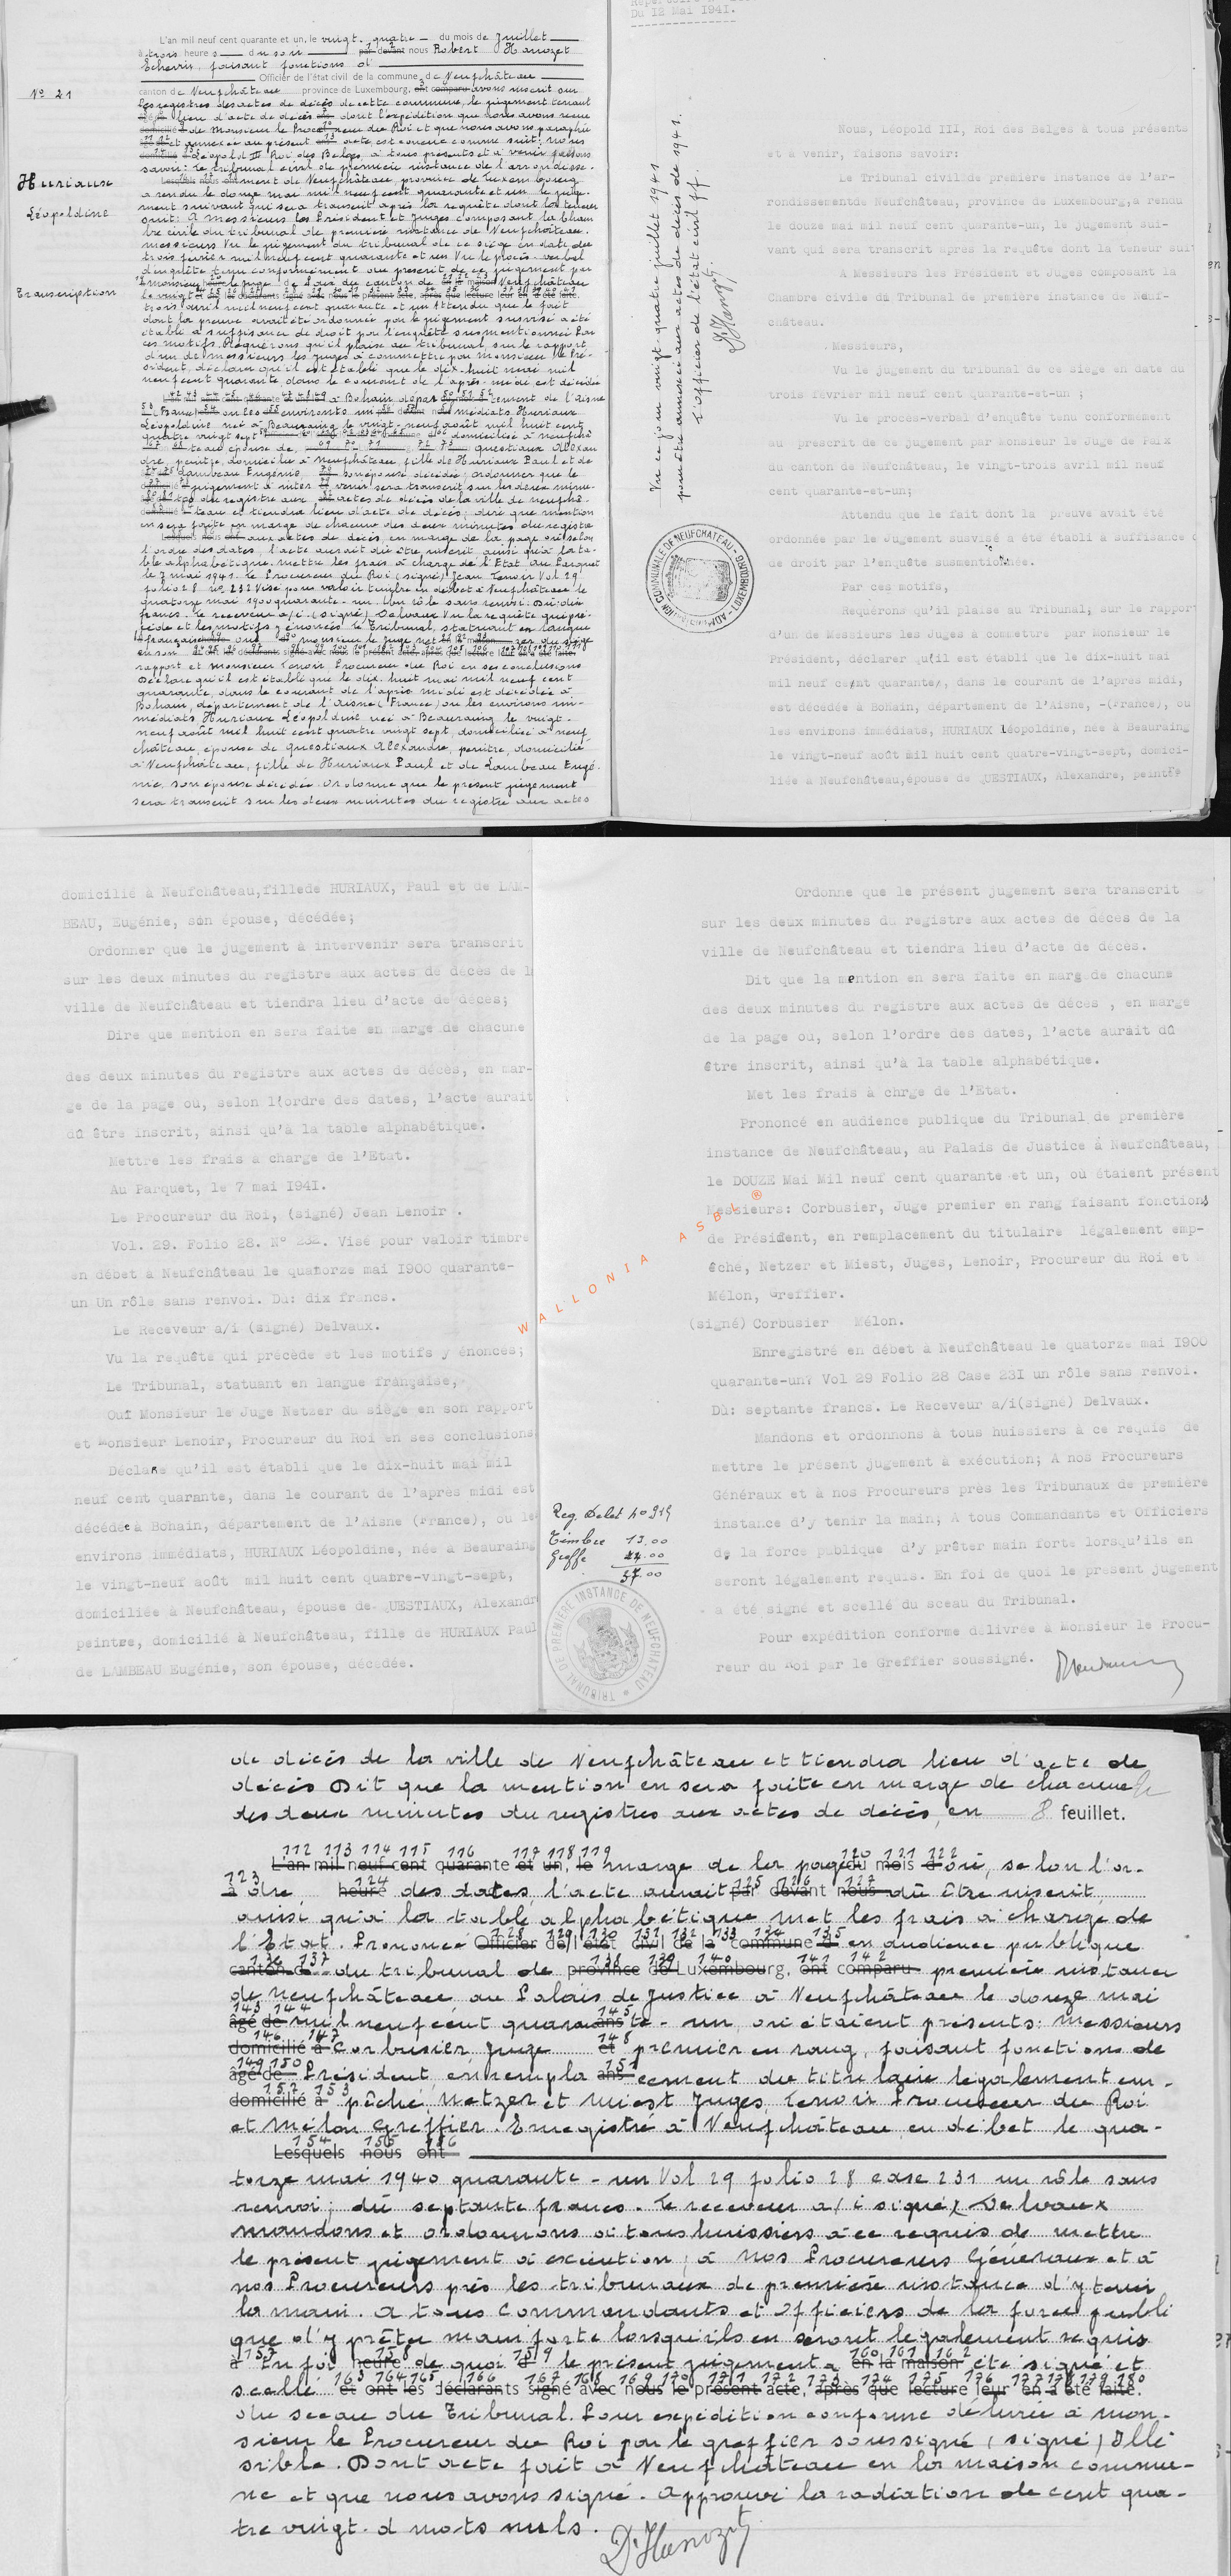 L'an mil neuf cent quarante et un, le vingt-quatre du mois de Juillet
à trois heures du soir par devant nous Robert Hanozet
Echevin, faisant fonctions d'
Officier de l'état civil de la commune de Neufchâteau
N° 21
canton de Neufchâteau province de Luxembourg, ont comparu avons inscrit sur
les registres des actes de décès de cette commune, le jugement tenant
lieu d'acte de décès dont l'expédition que nous avons reçue
de Monsieur le Procureur du Roi et que nous avons paraphée
et annexée au présent acte, est conçue comme suit: Nous
Léopold III Roi des Belges, à tous présents et à venir faisons
savoir: Le tribunal civil de première instance de l'arrondisse-
Huriaux
Lesquels nous ont ment de Neufchâteau province de Luxembourg
a rendu le douze mai mil neuf cent quarante et un le juge-
Léopoldine
ment suivant qui sera transcrit après la requête dont la teneur
suit: A Messieurs les Président et Juges composant la Cham
bre civile du tribunal de première instance de Neufchâteau.
Messieurs Vu le jugement du tribunal de ce siège en date du
trois février mil neuf cent quarante et un Vu le procès-verbal
d'enquête tenu conformément au prescrit de ce jugement par
Monsieur le Juge de Paix du canton de Neufchâteau
Transcription
le vingt
trois avril mil neuf cent quarante et un Attendu que le fait
dont la preuve avait été ordonnée par le jugement susvisé a été
établi à suffisance de droit par l'enquête susmentionnée Par
ces motifs, Requérons qu'il plaise au tribunal, sur le rapport
d'un de messieurs les Juges à commettre par Monsieur le Pré-
sident, déclarer qu'il est établi que le dix-huit mai mil
neuf cent quarante, dans le courant de l'après-midi est décédée
à Bohain départ tement de l'Aisne
France) ou les environs im médiats Huriaux
Léopoldine née à Beauraing le vingt-neuf août mil huit cent
quatre vingt sept domiciliée à neufchâ
teau épouse de Questiaux Alexan
dre, peintre, domicilié à Neufchâteau, fille de Huriaux Paul et de
Lambeau Eugénie son épouse décédée; ordonner que le
jugement à inter venir sera transcrit sur les deux minu-
tes du registre aux actes de décès de la ville de neufchâ-
teau et tiendra lieu d'acte de décès; dire que mention
en sera faite en marge de chacune des deux minutes du registre
Lesquels nous ont aux actes de décès, en marge de la page où, selon
l'ordre des dates, l'acte aurait dû être inscrit, ainsi qu'à la ta-
ble alphabétique. Mettre les frais à charge de l'Etat Au Parquet
le 7 mai 1941. Le Procureur du Roi (signé) Jean Lenoir Vol 29
folio 28 no 232 Visé pour valoir timbre en débet à Neufchâteau le
quatorze mai 1900 quarante-un. Un rôle sans renvoi: Dû: dix
francs. Le receveur a/i (signé) Delvaux Vu la requête qui pré-
cède et les motifs y énoncés Le Tribunal, statuant en langue
française ouï monsieur le Juge Net zer du siège
en son
rapport et Monsieur Lenoir Procureur du Roi en ses conclusions
Déclare qu'il est établi que le dix-huit mai mil neuf cent
quarante, dans le courant de l'après midi est décédée à
Bohain, département de l'Aisne (France) ou les environs im-
médiats Huriaux Léopoldine née à Beauraing le vingt-
neuf août mil huit cent quatre vingt sept, domiciliée à Neuf
château, épouse de Questiaux Alexandre, peintre, domicilié
à Neufchâteau, fille de Huriaux Paul et de Lambeau Eugé-
nie, son épouse décédée. Ordonne que le présent jugement
sera transcrit sur les deux minutes du registre aux actes
Vu ce jour vingt-quatre juillet 1941
pour être annexé aux actes de décès de 1941.
L'officier de l'état civil ff.
D. Hanozet
ADMINISTRATION COMMUNALE DE NEUFCHATEAU - LUXEMBOURG
Du 12 Mai 1941.
Nous, Léopold III, Roi des Belges à tous présents
et à venir, faisons savoir:
Le Tribunal civil de première instance de l'ar-
rondissementde Neufchâteau, province de Luxembourg,a rendu
le douze mai mil neuf cent quarante-un, le jugement sui-
vant qui sera transcrit après la requête dont la teneur suit
A Messieurs les Président et Juges composant la
Chambre civile du Tribunal de première instance de Neuf-
château.
Messieurs,
Vu le jugement du tribunal de ce siège en date du
trois février mil neuf cent quarante-et-un ;
Vu le procès-verbal d'enquête tenu conformément
au prescrit de ce jugement par Monsieur le Juge de Paix
du canton de Neufchâteau, le vingt-trois avril mil neuf
cent quarante-et-un;
Attendu que le fait dont la preuve avait été
ordonnée par le Jugement susvisé a été établi à suffisance
de droit par l'enquête susmentionnée.
Par ces motifs,
Requérons qu'il plaise au Tribunal, sur le rapport
d'un de Messieurs les Juges à comettre par Monsieur le
Président, déclarer qu'il est établi que le dix-huit mai
mil neuf cent quarante, dans le courant de l'après midi,
est décédée à Bohain, département de l'Aisne, -(France), ou
les environs immédiats, HURIAUX Léopoldine, née à Beauraing
le vingt-neuf août mil huit cent quatre-vingt-sept, domici-
liée à Neufchâteau,épouse de QUESTIAUX, Alexandre, peintre
domicilié à Neufchâteau,fillede HURIAUX, Paul et de LAM-
BEAU, Eugénie, son épouse, décédée;
Ordonner que le jugement à intervenir sera transcrit
sur les deux minutes du registre aux actes de décès de l
ville de Neufchâteau et tiendra lieu d'acte de décès;
Dire que mention en sera faite en marge de chacune
des deux minutes du registre aux actes de décès, en mar-
ge de la page où, selon l'ordre des dates, l'acte aurait
dû être inscrit, ainsi qu'à la table alphabétique.
Mettre les frais à charge de l'Etat.
Au Parquet, le 7 mai 1941.
Le Procureur du Roi, (signé) Jean Lenoir .
Vol. 29. Folio 28. N° 232. Visé pour valoir timbre
en débet à Neufchâteau le quatorze mai 1900 quarante-
un Un rôle sans renvoi. Dû: dix francs.
Le Receveur a/i (signé) Delvaux.
Vu la requête qui précède et les motifs y énoncés;
Le Tribunal, statuant en langue française,
Ouï Monsieur le Juge Netzer du siège en son rapport
et Monsieur Lenoir, Procureur du Roi en ses conclusions
Déclare qu'il est établi que le dix-huit mai mil
neuf cent quarante, dans le courant de l'après midi est
décédée à Bohain, département de l'Aisne (France), ou le
environs immédiats, HURIAUX Léopoldine, née à Beauraing
le vingt-neuf août mil huit cent quatre-vingt-sept,
domiciliée à Neufchâteau, épouse de QUESTIAUX, Alexandr
peintre, domicilié à Neufchâteau, fille de HURIAUX Paul
de LAMBEAU Eugénie, son épouse, décédée.
Ordonne que le présent jugement sera transcrit
sur les deux minutes du registre aux actes de décès de la
ville de Neufchâteau et tiendra lieu d'acte de décès.
Dit que la mention en sera faite en marg de chacune
des deux minutes du registre aux actes de décès , en marge
de la page où, selon l'ordre des dates, l'acte aurait dû
être inscrit, ainsi qu'à la table alphabétique.
Met les frais à chrge de l'Etat.
Prononcé en audience publique du Tribunal de première
instance de Neufchâteau, au Palais de Justice à Neufchâteau,
le DOUZE Mai Mil neuf cent quarante et un, où étaient présent
Messieurs: Corbusier, Juge premier en rang faisant fonctions
de Président, en remplacement du titulaire légalement emp-
êché, Netzer et Miest, Juges, Lenoir, Procureur du Roi et
Mélon, Greffier.
(signé) Corbusier Mélon.
Enregistré en débet à Neufchâteau le quatorze mai 1900
quarante-un? Vol 29 Folio 28 Case 231 un rôle sans renvoi.
Dû: septante francs. Le Receveur a/i(signé) Delvaux.
Mandons et ordonnons à tous huissiers à ce requis de
mettre le présent jugement à exécution; A nos Procureurs
Généraux et à nos Procureurs près les Tribunaux de première
instance d'y tenir la main; A tous Commandants et Officiers
de la force publique d'y prêter main forte lorsqu'ils en
seront légalement requis. En foi de quoi le présent jugement
a été signé et scellé du sceau du Tribunal.
Pour expédition conforme délivrée à Monsieur le Procu-
reur du Roi par le Greffier soussigné.
Reg. Debet n° 919
Timbre 13.00
Greffe 44.00
57.00
TRIBUNAL DE PREMIÈRE INSTANCE DE NEUFCHATEAU
WALLONIA ASBL ®
de décès de la ville de Neufchâteau et tiendra lieu d'acte de
décès Dit que la mention en sera faite en marge de chacune
des deux minutes du registres aux actes de décès, en 8 feuillet.
112 113 114 115 116 117 118 119
L'an mil neuf cent quarante et un, le marge de la page du mois d où, selon l'or-
dre, heure des dates l'acte aurait par devant nous dû être inscrit,
ainsi qu'à la table alphabétique Met les frais à charge de
l'Etat. Prononcé Officier de l'état civil de la commune d en audience publique
canton d du tribunal de province de Luxembourg, ont comparu première instance
de Neufchâteau au Palais de Justice à Neufchâteau le douze mai
âgé de mil neuf cent quaran ans te-un, où étaient présents: Messieurs
domicilié à Corbusier, Juge et premier en rang, faisant fonctions de
âgé de Président, en rempla ans cement du titulaire légalement em-
domicilié à pêché, Netzer et Miest Juges, Lenoir Procureur du Roi
et Mélon Greffier. Enregistré à Neufchâteau en débet le qua-
154 155 156
Lesquels nous ont
torze mai 1940 quarante-un Vol 29 folio 28 case 231 un rôle sans
renvoi; dû septante francs. Le receveur a/i signé) Delvaux
mandons et ordonnons à tous huissiers à ce requis de mettre
le présent jugement à exécution; à nos Procureurs Généraux et à
nos Procureurs près les tribunaux de première instance d'y tenir
la main. A tous Commandants et Officiers de la force publi
que d'y prêter main forte lorsqu'ils en seront légalement requis
à En foi heure de quoi d le présent jugement a en la maison été signé et
scellé et ont les déclarants signé avec nous le présent acte, après que lecture leur en a été faite.
du sceau du Tribunal. Pour expédition conforme délivrée à Mon-
sieur le Procureur du Roi par le greffier soussigné (signé) Illi
sible. Dont acte fait à Neufchâteau en la maison commu-
ne et que nous avons signé. Approuvé la radiation de cent qua-
tre vingt-d mots nuls.
D. Hanozet